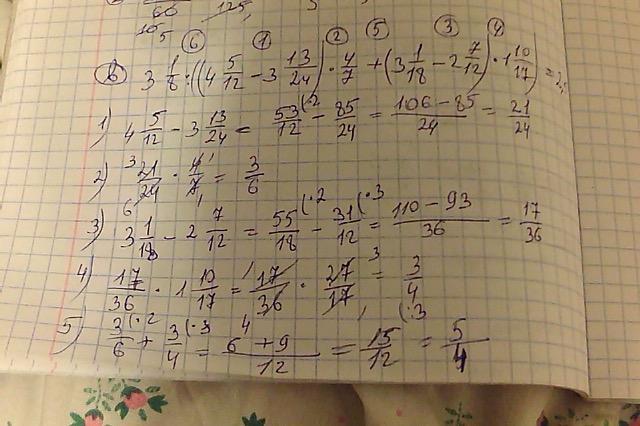 60 125,
10 5 5
⑥ ① ② ⑤ ③ ④
б) 3 1/8 : ((4 5/12 - 3 13/24) · 4/7 + (3 1/18 - 2 7/12) · 1 10/17) = 2,5
1) 4 5/12 - 3 13/24 = 53/12 (·2 - 85/24 = 106 - 85/24 = 21/24
2) 21/24 · 4/7 = 3/6
3) 3 1/18 - 2 7/12 = 55/18 (·2 - 31/12 (·3 = 110 - 93/36 = 17/36
4) 17/36 · 1 10/17 = 17/36 · 27/17 = 3/4
5) 3/6 (·2 + 3/4 (·3 = 6 + 9/12 = 15/12 (:3 = 5/4